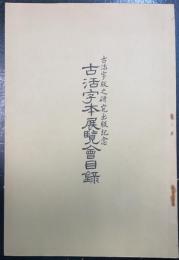 古活字版之研究出版紀念
古活字本展覽會目錄